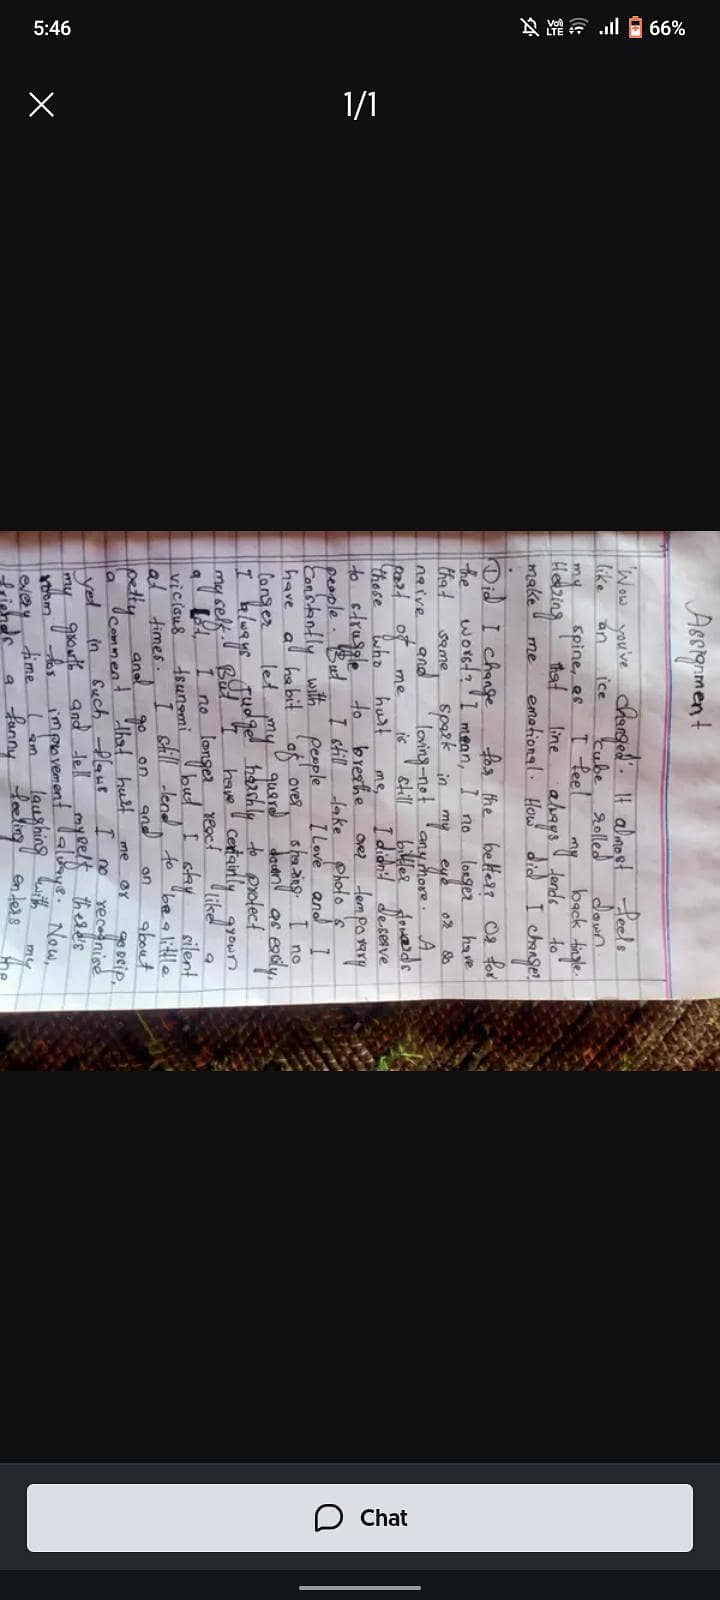 5:46
Vo)) LTE 66%
1/1
Assignment
'Wow you've changed'. It almost feels
like an ice cube rolled down
my spine, as I feel my back tingle.
Hearing that line always tends to
make me emotional. How did I change?
Did I change for the better? Or for
the worst? I mean, I no longer have
that same spark in my eye or so
naive and loving-not anymore. A
part of me is still bitter towards
those who hurt me, I didn't deserve
to struggle to breathe over temporary
people. But I still take photo's
Constantly with people I Love and I
have a habit of over sharing. I no
longer let my guard down as easily,
I always Judged harshly to protect
myself. But I have certainly grown
a lot, I no longer react like a
vicious tsunami but I stay silent
at times. I still tend to be a little
petty and go on and on about
a comment that hurt me or gossip,
yet in such flaws I no recognise
my growth and tell myself there's
room for improvement always. Now,
every time I am laughing with my
friends a funny feeling enters the
Chat